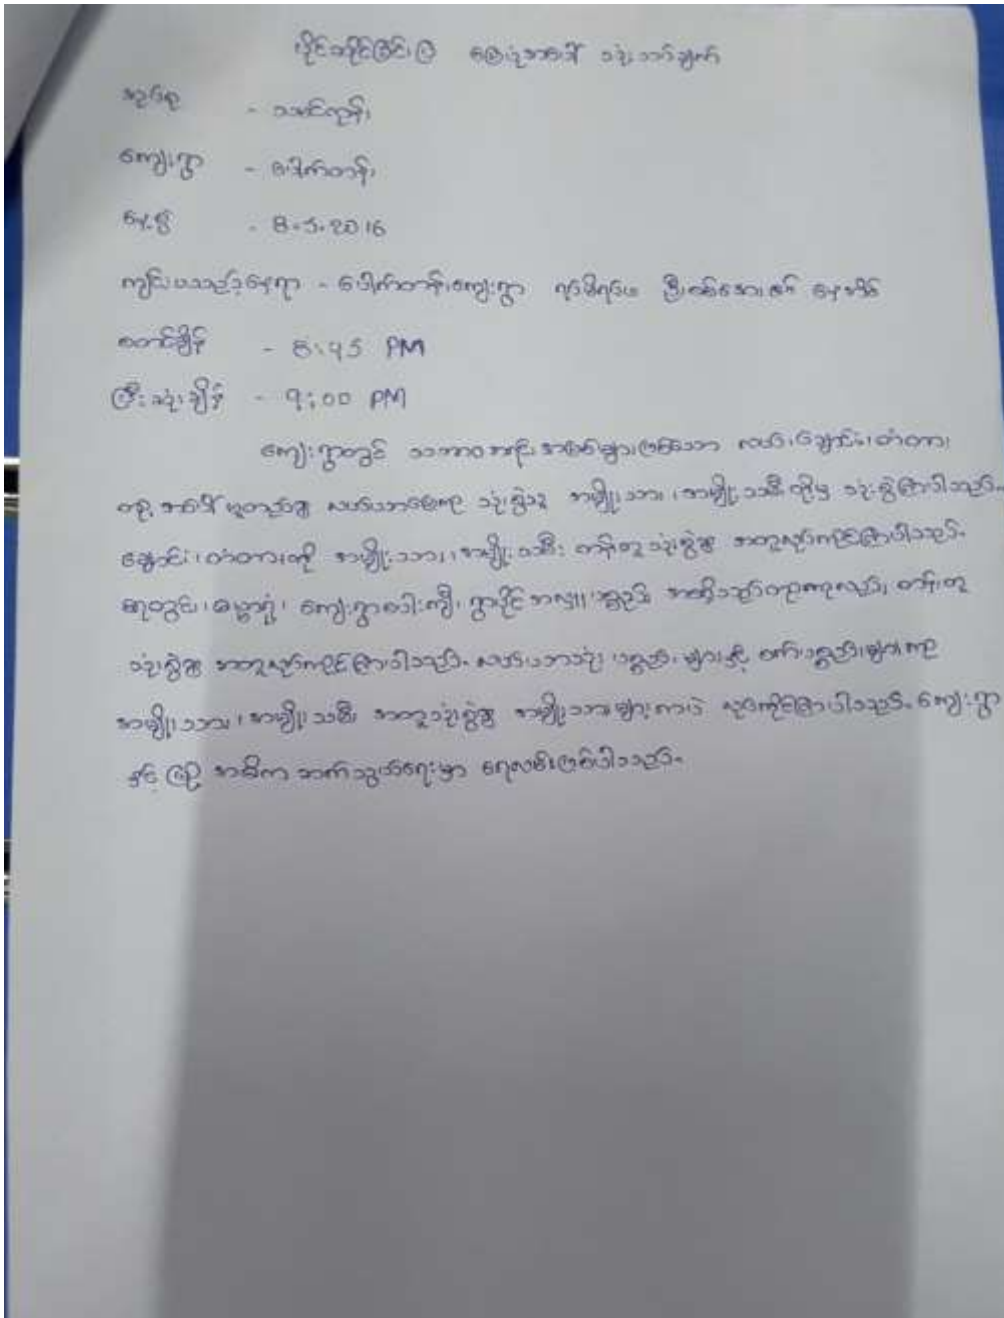 ပိုင်းတိုင်ခြင်းပြ မြေပုံအပေါ် သုံးသပ်ချက်
အုပ်စု - သမင်ကုန်း
ကျေးရွာ - ပေါက်တန်း
နေ့စွဲ - 8.5.2016
ကျင်းပသည့်နေရာ - ပေါက်တန်းကျေးရွာ ရပ်မိရပ်ဖ ဦး နေအိမ်
စတင်ချိန် - 8:45 PM
ပြီးဆုံးချိန် - 9:00 PM
ကျေးရွာတွင် သဘာဝအရင်းအမြစ်များဖြစ်သော လယ်၊ ချောင်း၊ တံတား၊
တို့အပေါ် မူတည်၍ လယ်ယာမြေကို သုံးစွဲသူ အမျိုးသား၊ အမျိုးသမီးတို့မှ သုံးစွဲကြပါသည်။
ချောင်း၊ တံတားကို အမျိုးသား၊ အမျိုးသမီး တန်းတူသုံးစွဲ၍ အတူလုပ်ကိုင်ကြပါသည်။
ရေတွင်း၊ ဓမ္မာရုံ၊ ကျေးရွာ ရွာပိုင် ပစ္စည်း လည်း တန်းတူ
သုံးစွဲ၍ အတူလုပ်ကိုင်ကြပါသည်။ လယ်ယာသုံး ပစ္စည်းများနှင့် ပစ္စည်းများကို
အမျိုးသား၊ အမျိုးသမီး အတူသုံးစွဲ၍ အမျိုးသားများကပဲ လုပ်ကိုင်ကြပါသည်။ ကျေးရွာ
နှင့် မြို့ အဓိက ဆက်သွယ်ရေးမှာ ရေလမ်းဖြစ်ပါသည်။